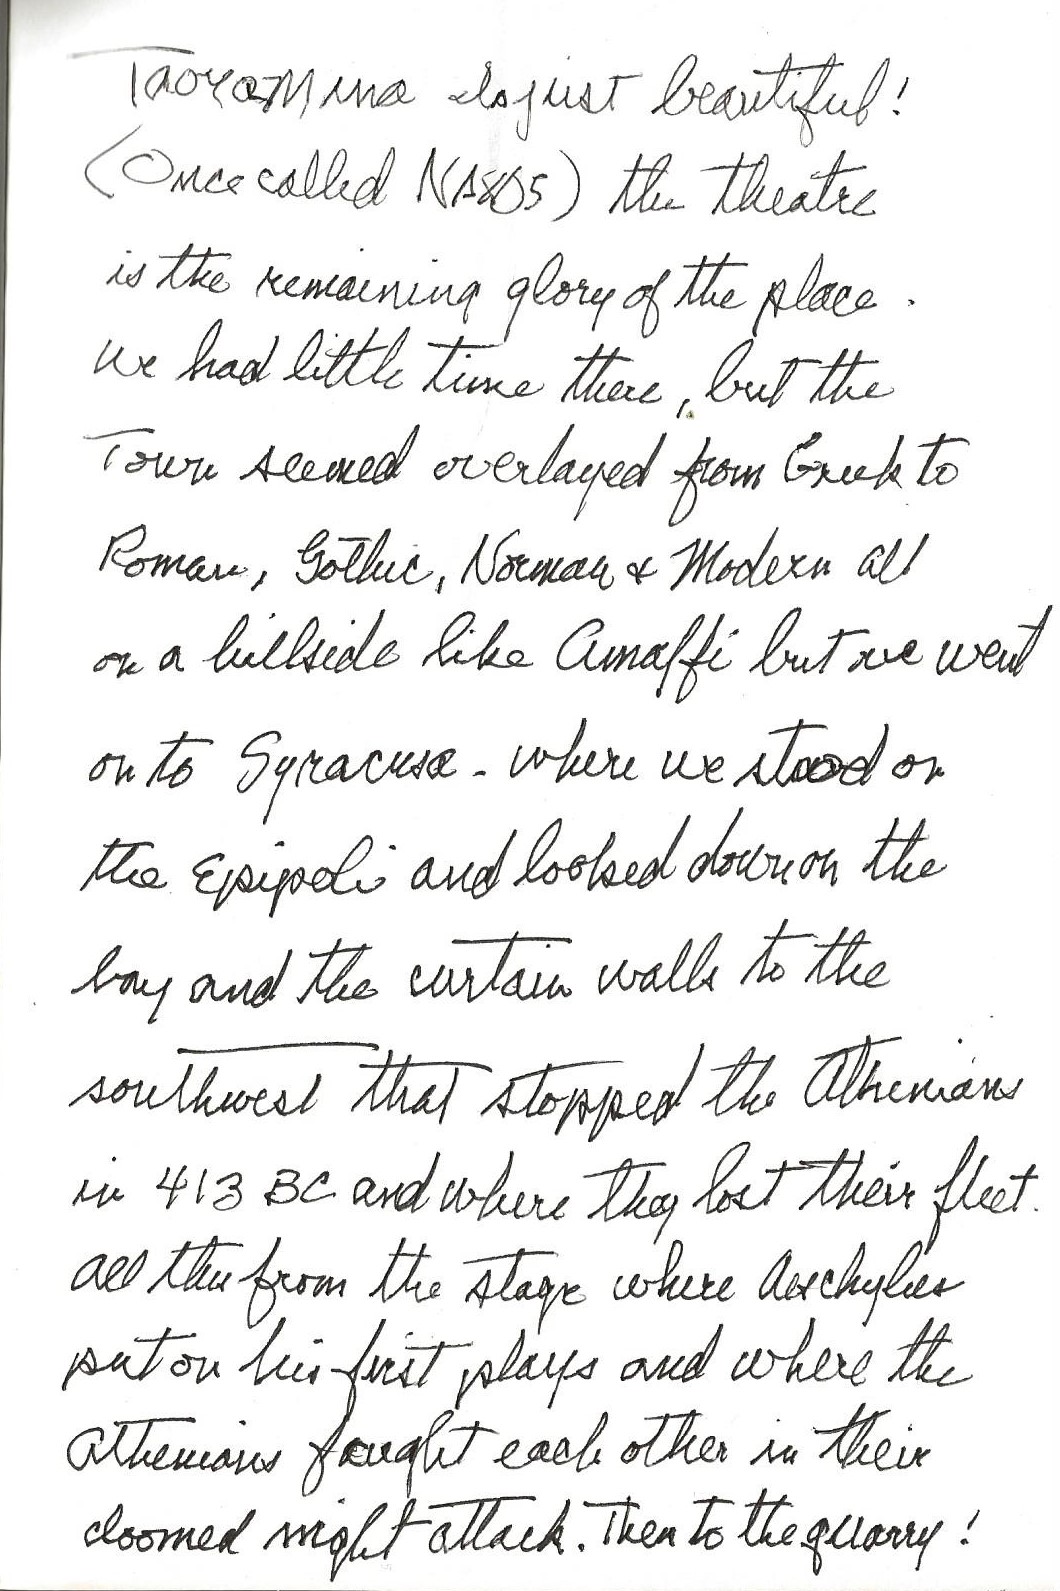 Taoramina is just beautiful!
(Once called NAXOS) the theatre
is the remaining glory of the place.
We had little time there, but the
Town seemed overlayed from Greek to
Roman, Gothic, Norman & Modern all
on a hillside like Amalfi but we went
on to Syracusa - where we stood on
the Epipoli and looked down on the
bay and the curtain walls to the
southwest that stopped the Athenians
in 413 BC and where they lost their fleet.
All this from the stage where Aeschylus
put on his first plays and where the
Athenians fought each other in their
doomed night attack. Then to the quarry!